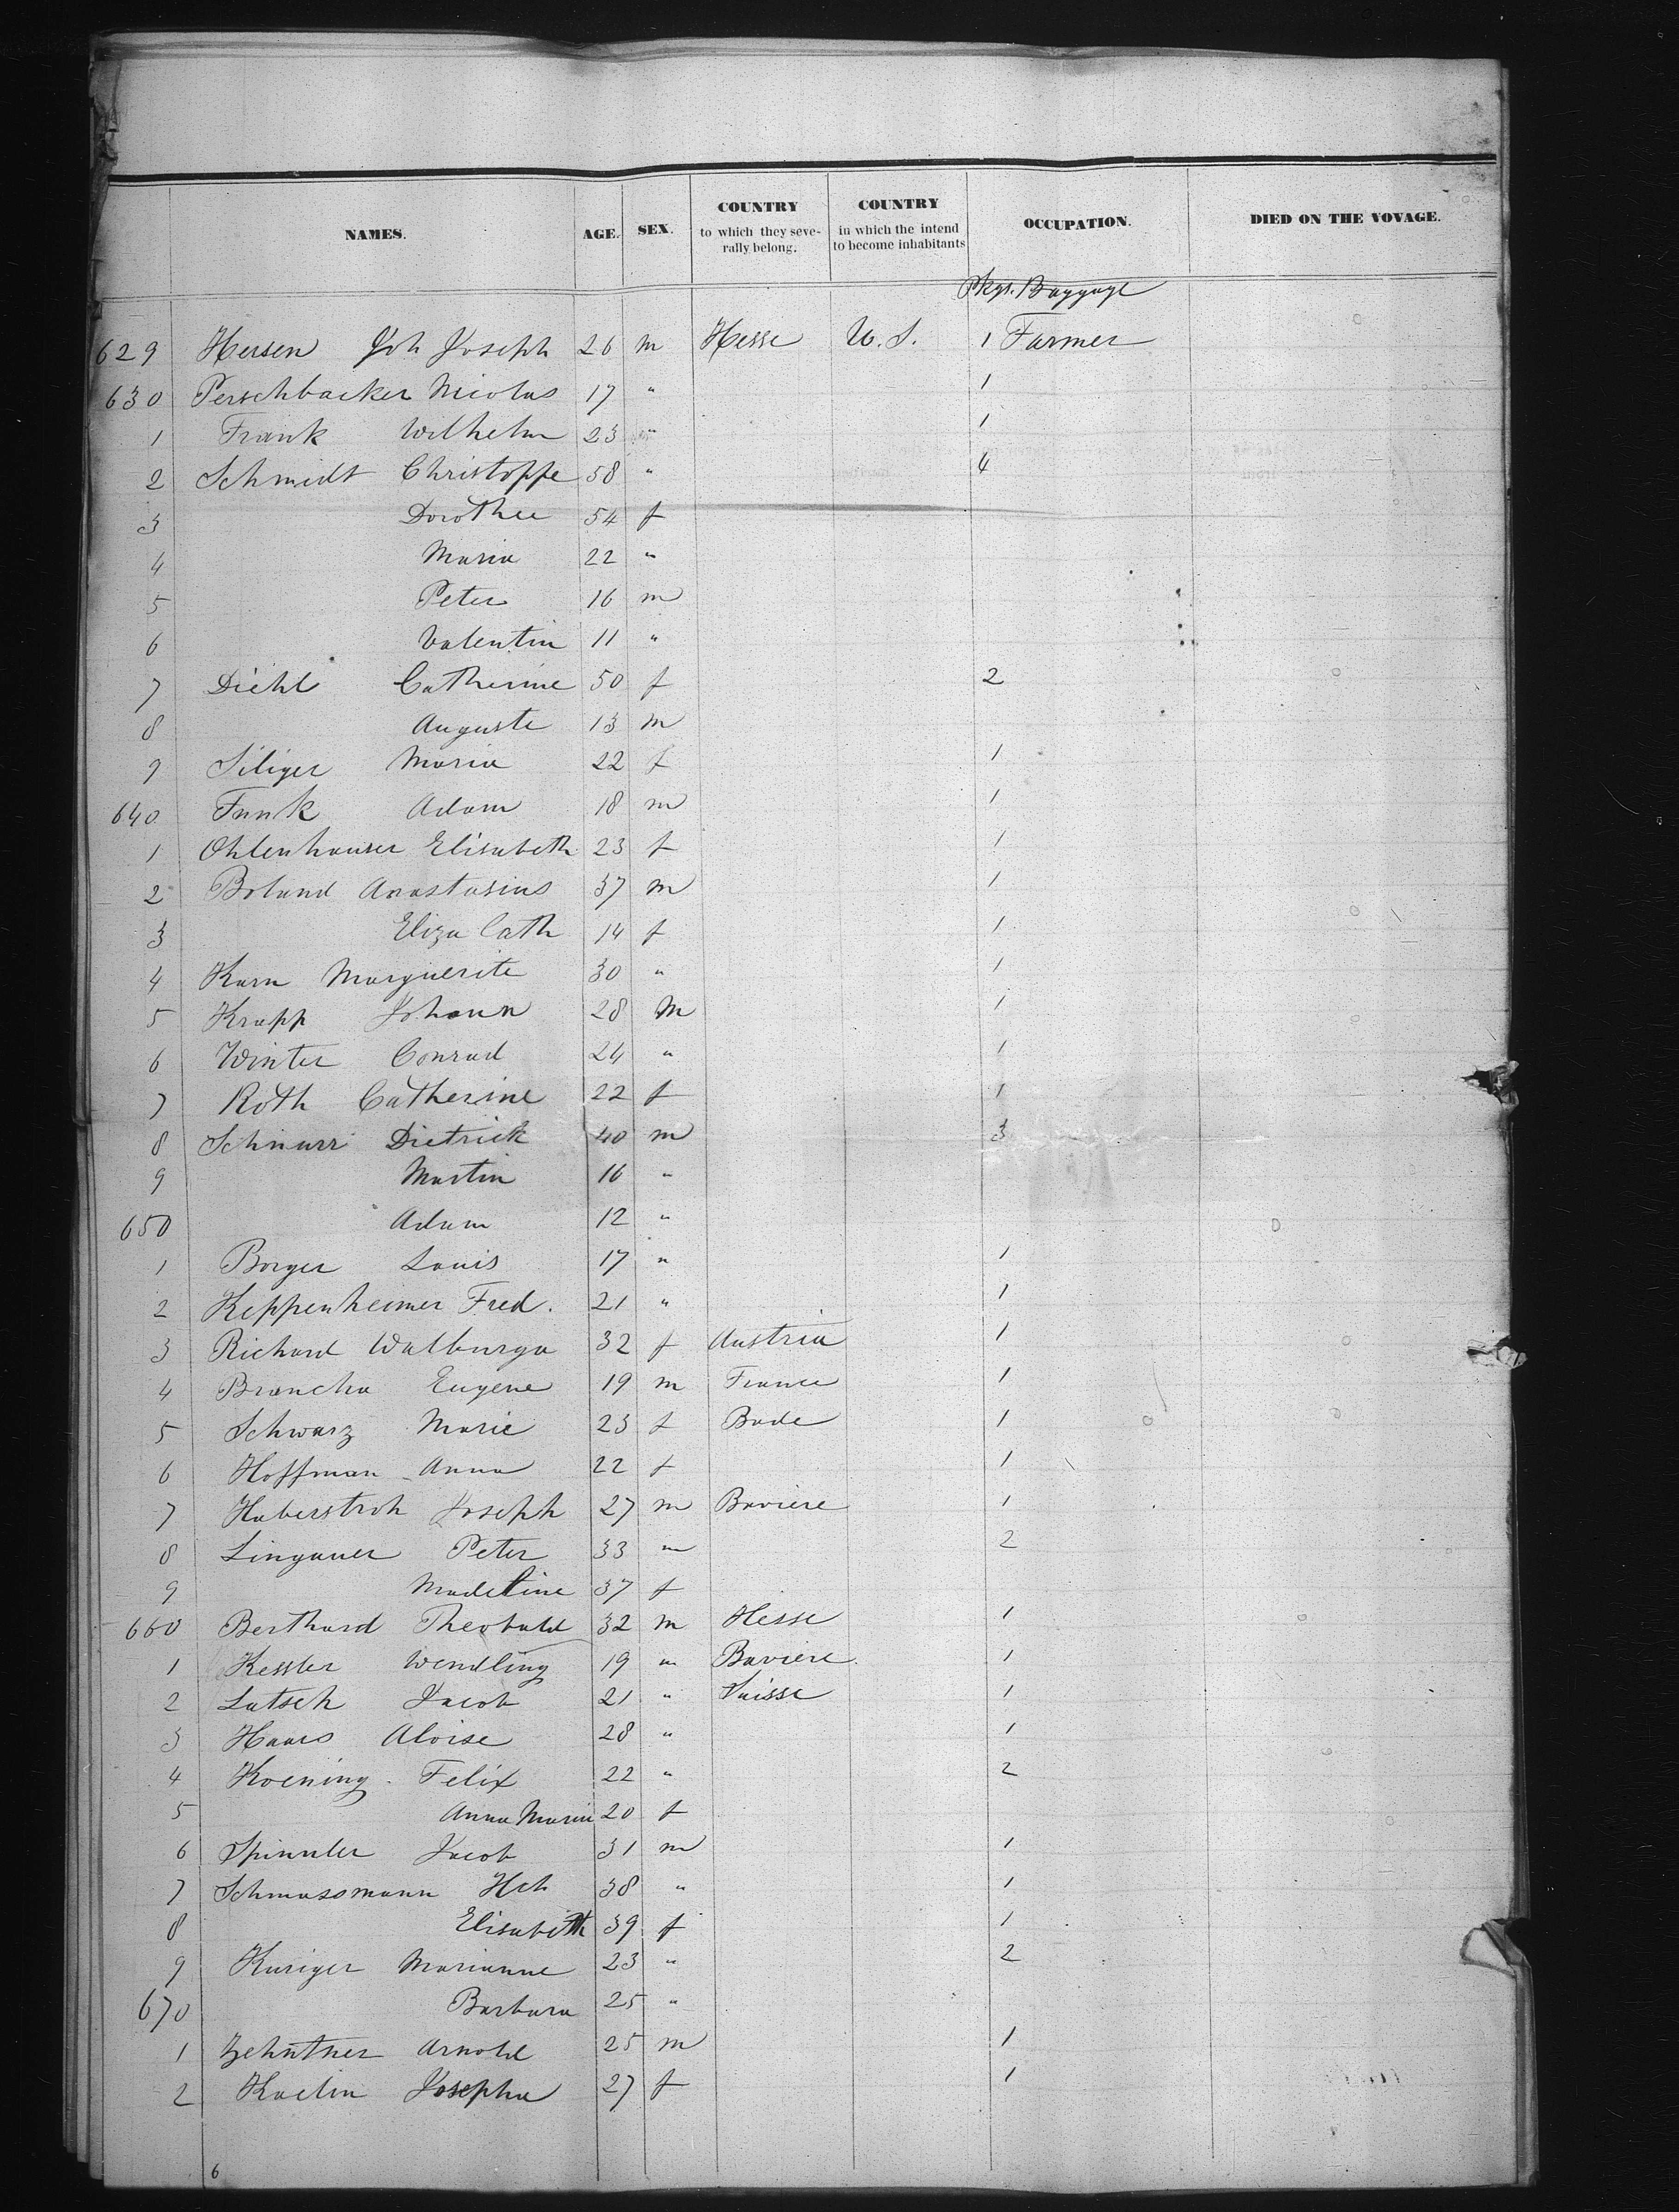 NAMES. AGE. SEX. COUNTRY to which they seve- rally belong. COUNTRY in which the intend to become inhabitants OCCUPATION. DIED ON THE VOYAGE.
Pkgs. Baggage
629 Hersen Joh Joseph 26 m Hesse U.S. 1 Farmer
630 Perschbacker Nicolas 17 " 1
1 Frank Wilhelm 23 " 1
2 Schmidt Christoppe 58 " 4
3 Dorothee 54 f
4 Maria 22 "
5 Peter 16 m
6 Valentin 11 "
7 Diehl Catherine 50 f 2
8 Auguste 13 m
9 Siliger Maria 22 f 1
640 Funk Adam 18 m 1
1 Ohlenhauser Elisabeth 23 f 1
2 Boland Anastasius 37 m 1
3 Eliza Cath 14 f 1
4 Karn Marguerite 30 " 1
5 Krapp Johann 28 m 1
6 Winter Conrad 24 " 1
7 Roth Catherine 22 f 1
8 Schnarr Dietrick 40 m 3
9 Martin 16 "
650 Adam 12 "
1 Borger Louis 17 " 1
2 Keppenheimer Fred. 21 " 1
3 Richard Walburga 32 f Austria 1
4 Brancha Eugene 19 m France 1
5 Schwarz Marie 23 f Bade 1
6 Hoffman Anna 22 f 1
7 Haberstroh Joseph 27 m Baviere 1
8 Lingauer Peter 33 m 2
9 Madeline 37 f
660 Berthard Theobald 32 m Hesse 1
1 Kessler Wendling 19 " Baviere 1
2 Latsch Jacob 21 " Suisse 1
3 Haars Aloise 28 " 1
4 Koening Felix 22 " 2
5 Anna Maria 20 f
6 Spinnler Jacob 31 m 1
7 Schmassmann Hch 38 " 1
8 Elisabeth 39 f 1
9 Kuriger Marianne 23 " 2
670 Barbara 25 "
1 Zehntner Arnold 25 m 1
2 Kaelin Josepha 27 f 1
6